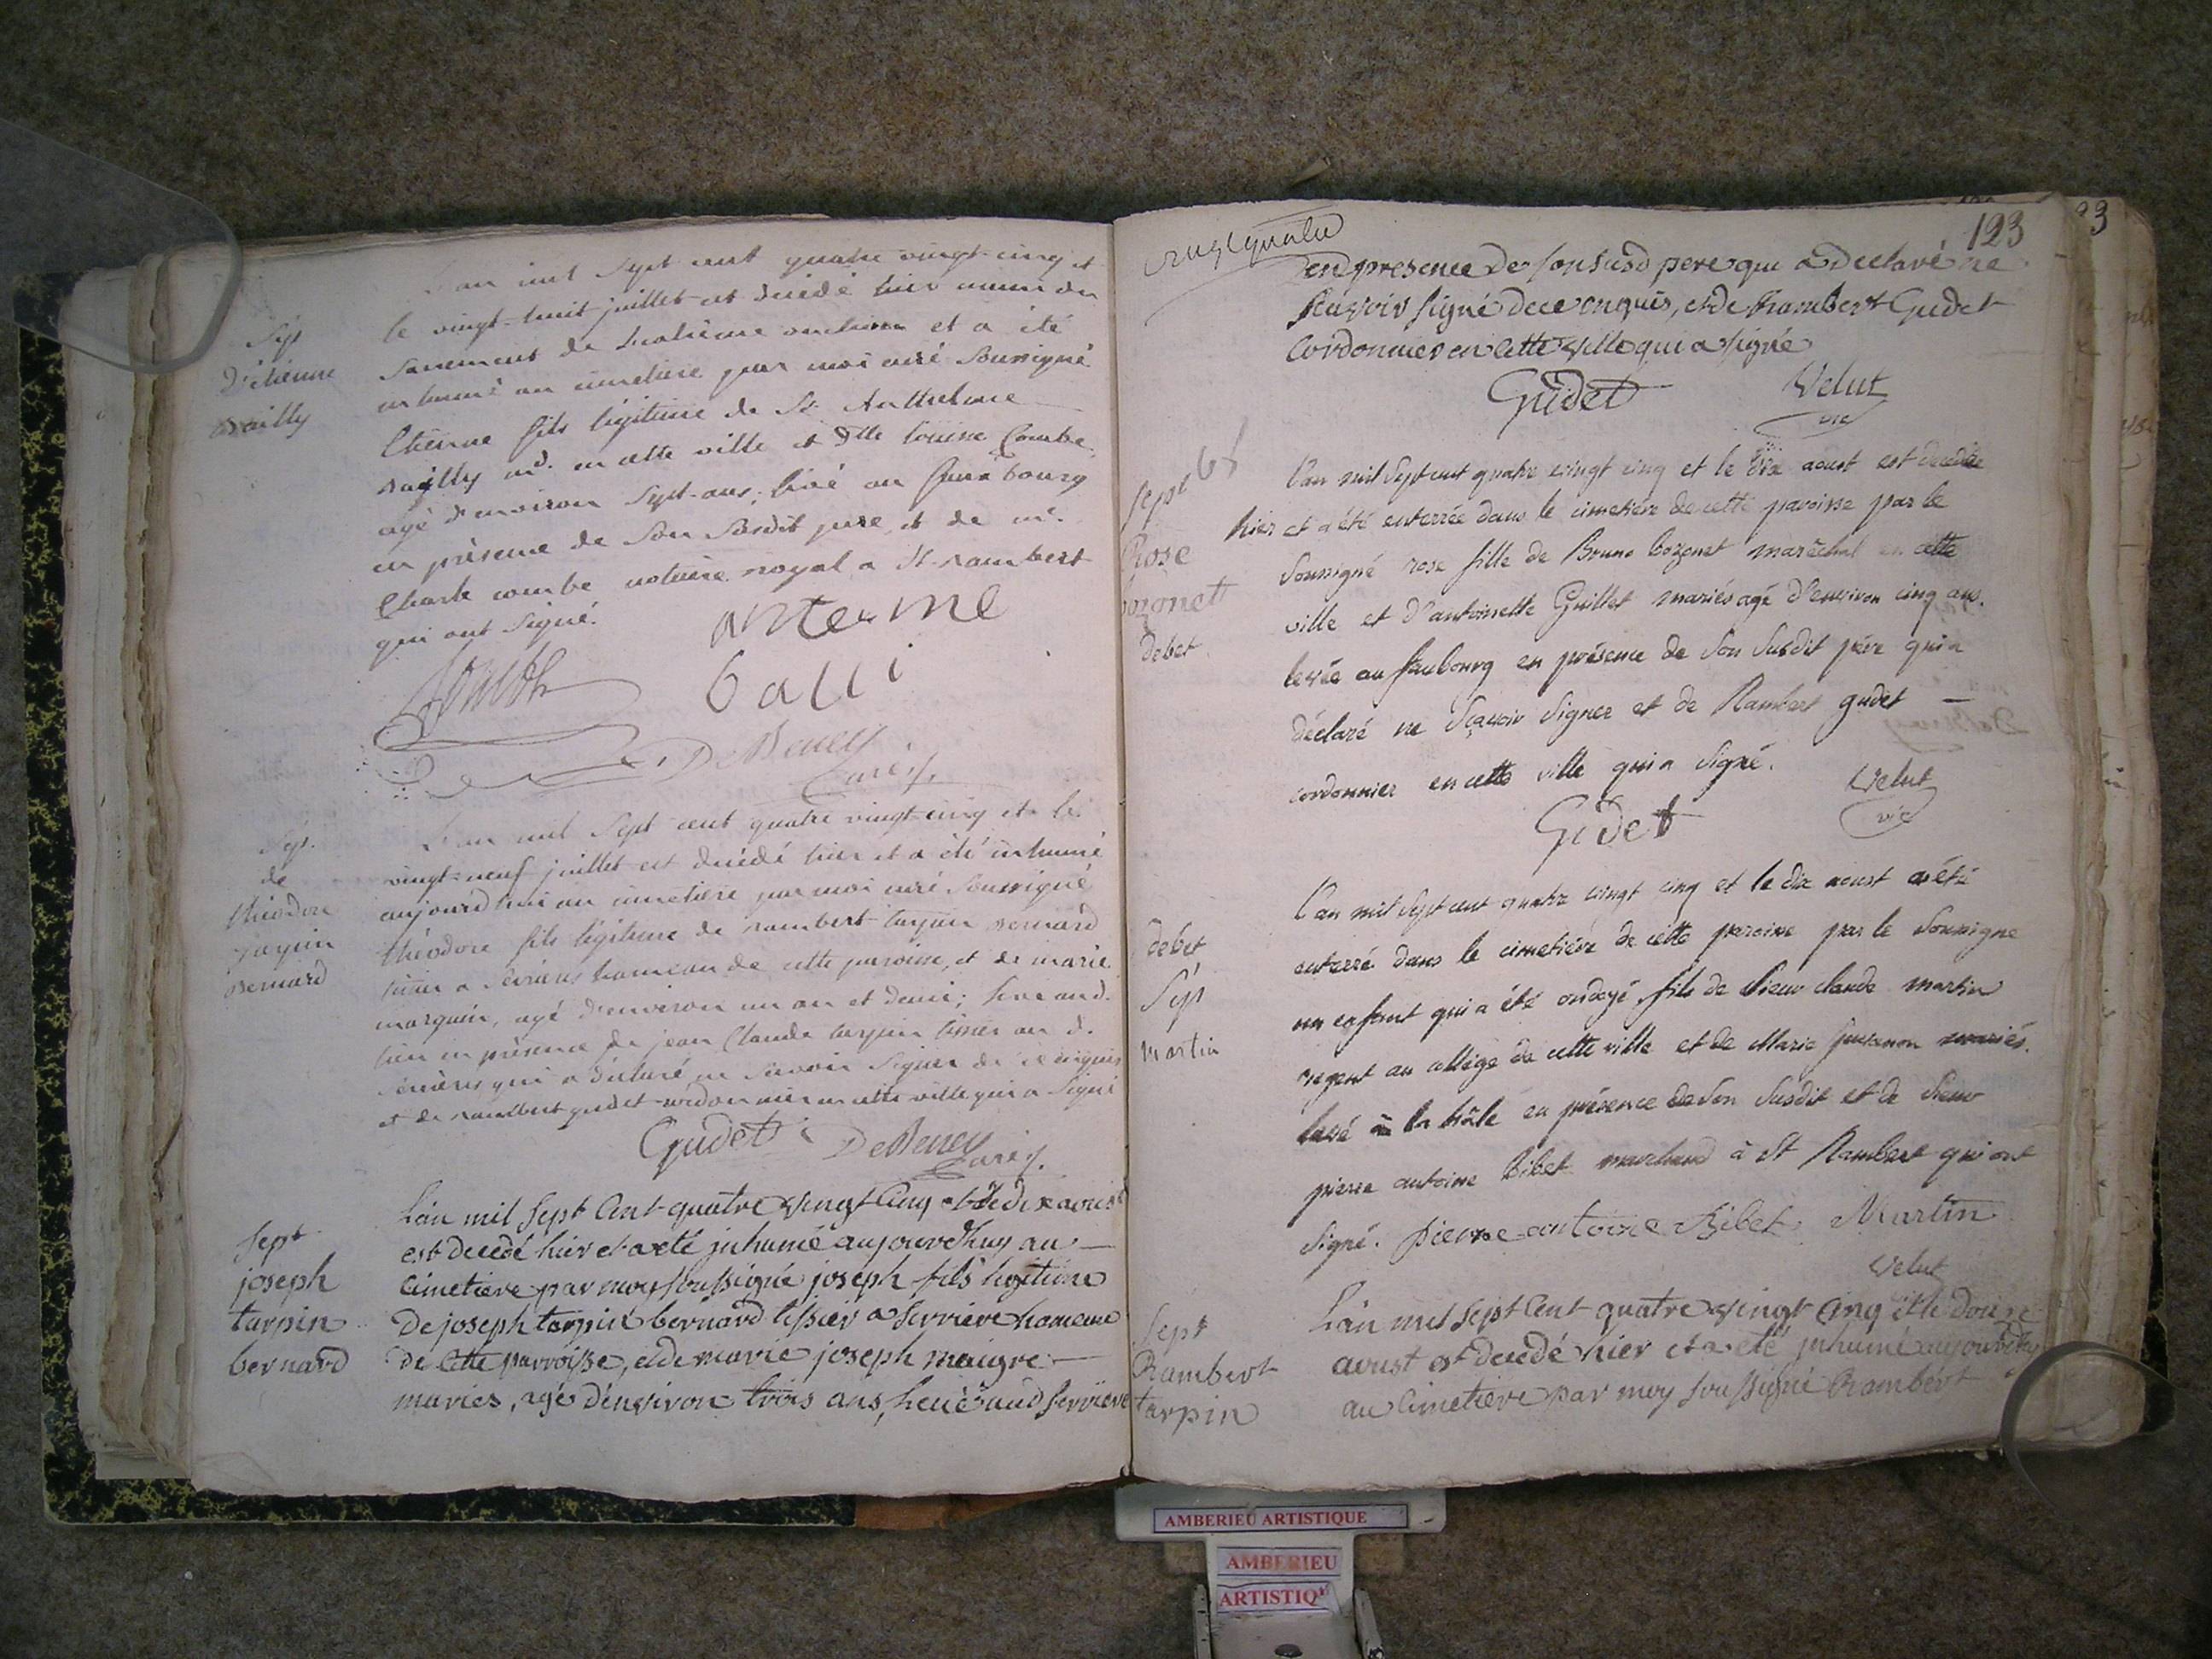 Sep
D'étienne
Bailly
L'an mil sept cent quatre vingt-cinq et
le vingt-huit juillet est décédé hier muni du
Sacrement de l'extrême onction et a été
inhumé au cimetière par moi curé soussigné
Etienne fils légitime de Sr Anthelme
Bailly md. en cette ville et Dlle Louise Combe
agé d'environ Sept-ans; levé au fauxbourg
en présence de Son Susdit pere, et de me.
Charle combe notaire royal a St-rambert
qui ont Signé.
anteme
balli
Combe
DeBeney
Curé
Sep.
de
théodore
tarpin
Bernard
L'an mil Sept cent quatre vingt-cinq et le
vingt-neuf juillet est décédé hier et a été inhumé
aujourd'hui au cimetière par moi curé Soussigné
théodore fils légitime de rambert tarpin Bernard
hameau de cette paroisse, et de marie
agé d'environ un an et demi; levé aud.
lieu en présence de jean Claude tarpin tissier au d.
qui a déclaré ne Savoir Signer de ce enquis
et de rambert gudet cordonnier en cette ville qui a Signé
Gudet DeBeney
Curé
Sept
joseph
tarpin
bernard
L'an mil Sept Cent quatre vingt Cinq et le dix aoust
est decedé hier et a eté inhumé aujourdhuy au
Cimetiere par moy soussigné joseph fils legitime
De joseph tarpin bernard tissier a Serriere hameau
de Cette parroisse, et de marie joseph maigre
maries, agé d'environ trois ans, levé aud Serriere
123
en presence de son susd pere qui a declaré ne
sçavoir signé de ce enquis, et de Rambert Gudet
Cordonnier en Cette ville qui a signé
Gudet Velut
vic
Sept
Rose
bozonett
debet
L'an mil Sept cent quatre vingt cinq et le dix aoust est decedée
hier et a été enterrée dans le cimetière de cette paroisse par le
Soussigné rose fille de Bruno bozonet maréchal en cette
ville et d'antoinette Guillet mariés agé d'environ cinq ans.
levée au faubourg en présence de Son Susdit père qui a
déclaré ne Sçavoir Signer et de Rambert gudet
cordonnier en cette ville qui a Signé.
Gudet
Velut
vic
debet
Sep
Martin
L'an mil Sept cent quatre vingt cinq et le dix aoust a été
enterré dans le cimetière de cette paroisse par le Soussigne
un enfant qui a été ondoyé fils de Sieur claude martin
regent au collége de cette ville et de Marie mariés.
levé à la hâle en présence de Son Susdit et de Sieur
pierre antoine Ribet marchand à St Rambert qui ont
Signé. pierre antoine Ribet Martin
Velut
Sept
Rambert
tarpin
L'an mil Sept Cent quatre vingt Cinq et le douze
aoust est decedé hier et a eté inhumé aujourdhuy
au Cimetiere par moy soussigné Rambert
AMBERIEU ARTISTIQUE
AMBERIEU
ARTISTIQ